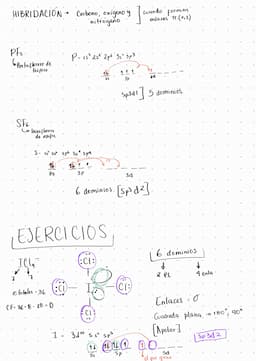 HIBRIDACIÓN → Carbono, oxígeno y nitrógeno ] cuando forman enlaces π (π,σ)
PF5
↳ Pentafluoruro de fósforo
P - 1s² 2s² 2p⁶ 3s² 3p³
3s 3p 3d
sp3d1 ] 5 dominios
SF6
↳ hexafluoruro de azufre
S - 1s² 2s² 2p⁶ 3s² 3p⁴
3s 3p 3d
6 dominios [sp3d2]
EJERCICIOS
ICl4⁻
Cl
Cl I Cl
Cl
6 dominios
2 PL 4 enla
Enlaces - σ
Cuadrada plana → 180°, 90°
[Apolar]
sp3d2
5s 5p 5d